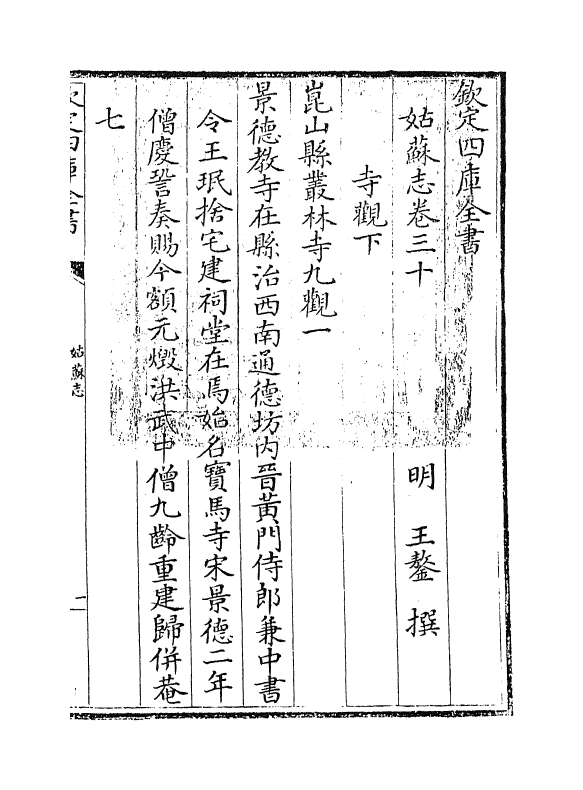 欽定四庫全書
姑蘇志卷三十
明 王鏊 撰
寺觀下
崑山縣叢林寺九觀一
景德教寺在縣治西南通德坊内晉黃門侍郎兼中書
令王珉捨宅建祠堂在焉始名寶馬寺宋景德二年
僧慶詧奏賜今額元燬洪武中僧九齡重建歸併菴
七
欽定四庫全書
姑蘇志
一